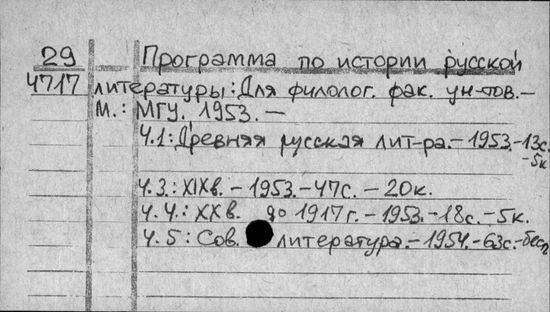 29 Программа по истории русской
4717 литературы: Для филолог. фак. ун-тов. –
М.: МГУ, 1953. –
Ч.1: Древняя русская лит-ра. – 1953. – 13с.
– 5к
Ч.3.: XIXв. – 1953. – 47с. – 20к.
Ч.4.: XXв. до 1917г. – 1953. – 18с. – 5к.
Ч.5: Сов. литература. – 1954. – 63с. – бесп